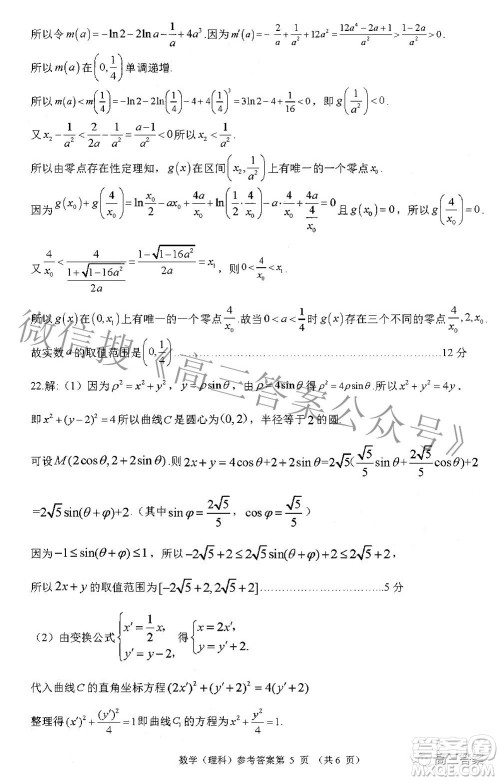 所以令m(a)=-ln2-2lna-1/a+4a³.因为m'(a)=-2/a+1/a²+12a²=(12a⁴-2a+1)/a²>(1-2a)/a²>0.
所以m(a)在(0,1/4)单调递增.
所以m(a)<m(1/4)=-ln2-2ln(1/4)-4+4(1/4)³=3ln2-4+1/16<0，即g(1/a²)<0.
又x₂-1/a²<2/(2a)-1/a²=(a-1)/a²<0所以x₂<1/a².
所以由零点存在性定理知，g(x)在区间(x₂,1/a²)上有唯一的一个零点x₀.
因为g(x₀)+g(4/x₀)=ln(x₀/2)-ax₀+4a/x₀+ln(1/2·4/x₀)-a·4/x₀+4a/(4/x₀)=0且g(x₀)=0，所以g(4/x₀)=0
又4/x₀<4/((1+√(1-16a²))/(2a))=(1-√(1-16a²))/(2a)=x₁，则0<4/x₀<x₁
所以g(x)在(0,x₁)上有唯一的一个零点4/x₀.故当0<a<1/4时g(x)存在三个不同的零点4/x₀,2,x₀
故实数a的取值范围是(0,1/4)……12分
22.解:（1）因为ρ²=x²+y²，y=ρsinθ，由ρ=4sinθ得ρ²=4ρsinθ.所以x²+y²=4y，
即x²+(y-2)²=4所以曲线C是圆心为(0,2)，半径等于2的圆
可设M(2cosθ,2+2sinθ).则2x+y=4cosθ+2+2sinθ=2√5(√5/5 sinθ+2√5/5 cosθ)+2
=2√5sin(θ+φ)+2.（其中sinφ=2√5/5，cosφ=√5/5）
因为-1≤sin(θ+φ)≤1，所以-2√5+2≤2x+y≤2√5+2，
所以2x+y的取值范围为[-2√5+2,2√5+2]……5分
（2）由变换公式{x'=1/2x, y'=y-2 得{x=2x', y=y'+2.
代入曲线C的直角坐标方程(2x')²+(y'+2)²=4(y'+2)
整理得(x')²+(y')²/4=1即曲线C₁的方程为x²+y²/4=1.
数学（理科）参考答案第 5 页 （共6 页）
微信搜《高三答案公众号》